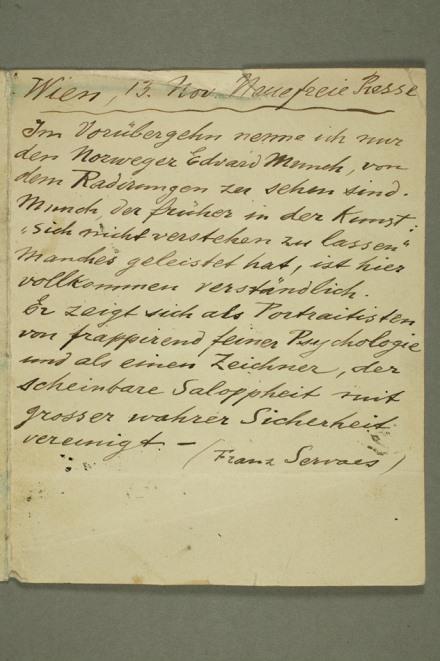 Wien, 13. Nov. Neuefreie Presse
Im Vorübergehn nenne ich nur
den Norweger Edvard Munch, von
dem Radirungen zu sehen sind.
Munch, der früher in der Kunst:
„sich nicht verstehen zu lassen"
manches geleistet hat, ist hier
vollkommen verständlich.
Er zeigt sich als Portraitisten
von frappirend feiner Psychologie
und als einen Zeichner, der
scheinbare Saloppheit mit
grosser wahrer Sicherheit
vereinigt. —
(Franz Servaes)